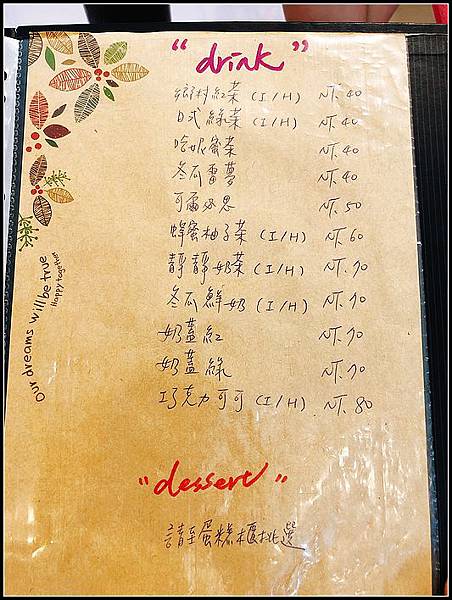 "drink"
鄉村紅茶 (I/H) NT. 40
日式綠茶 (I/H) NT. 40
哈妮蜜茶 NT. 40
冬瓜雷夢 NT. 40
可爾必思 NT. 50
蜂蜜柚子茶 (I/H) NT. 60
靜靜奶茶 (I/H) NT. 70
冬瓜鮮奶 (I/H) NT. 70
奶蓋紅 NT. 70
奶蓋綠 NT. 70
巧克力可可 (I/H) NT. 80
Our dreams will be true
Happy together
"dessert"
請至蛋糕櫃挑選